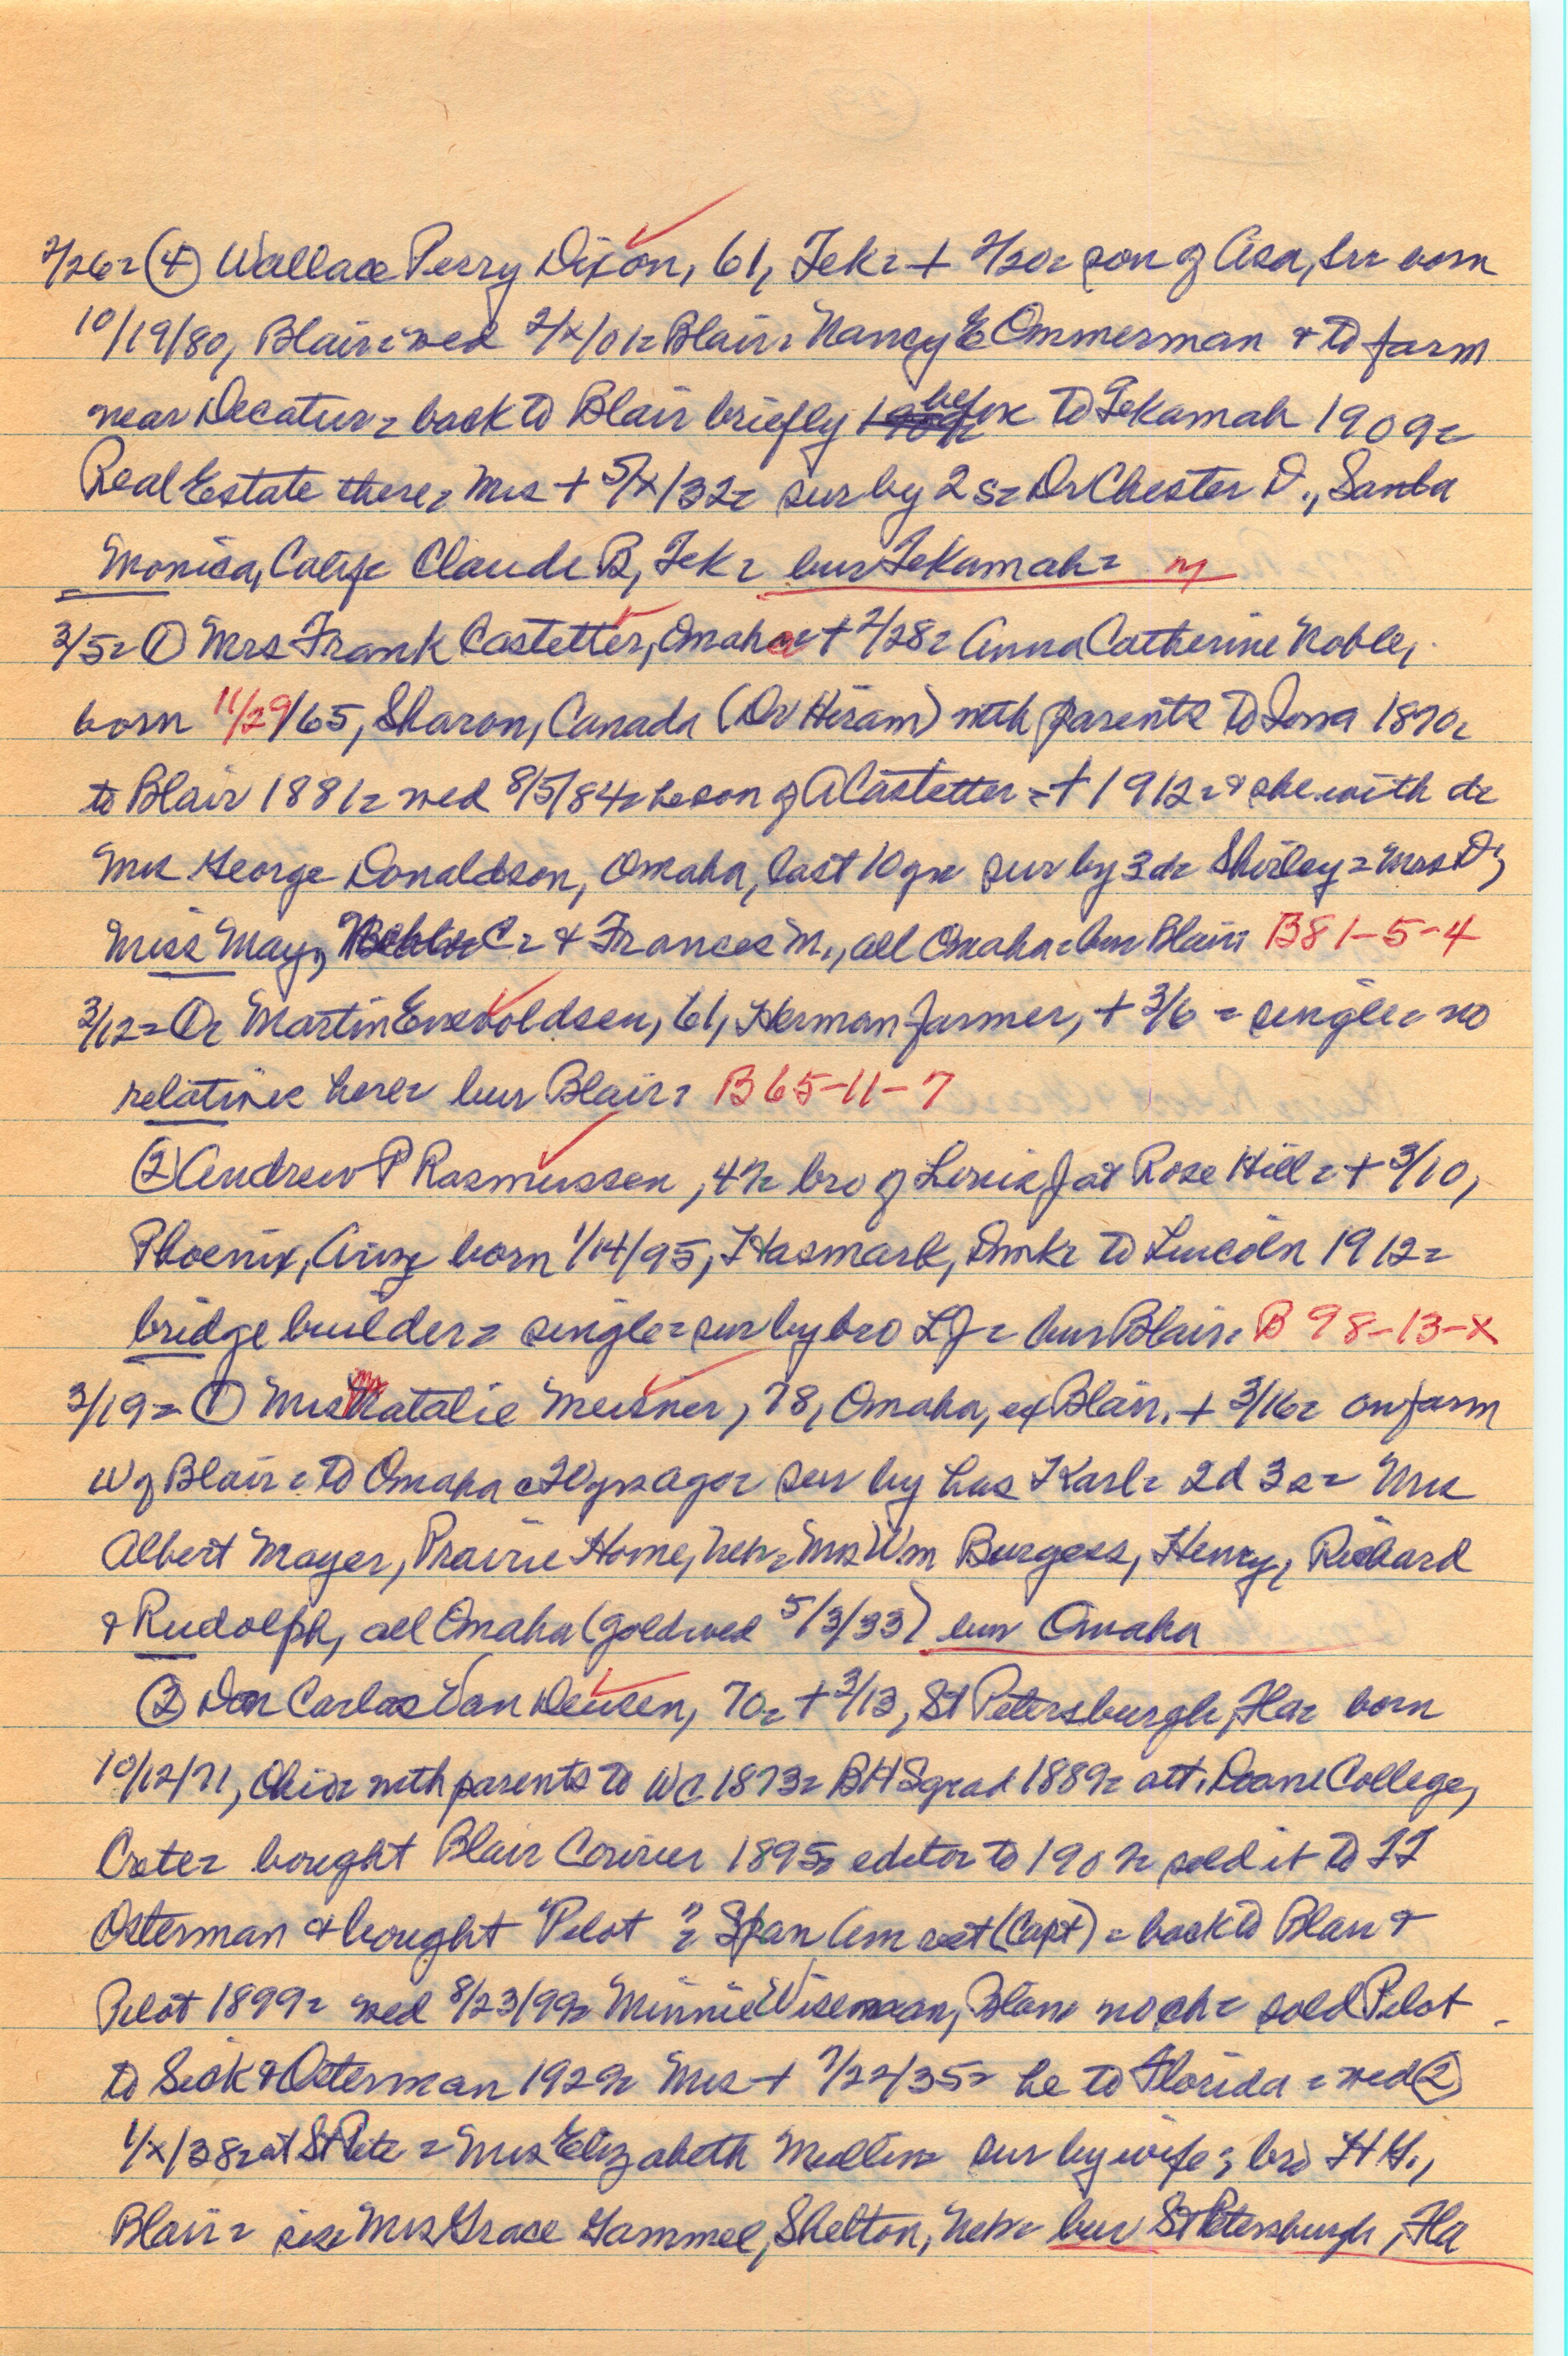 2/26= (4) Wallace Perry Dixon, 61, Tek= + 2/20= son of Asa, Sr= born
10/19/80, Blair= wed 2/x/01= Blair= Nancy E Ommerman & to farm
near Decatur= back to Blair briefly before to Tekamah 1909=
Real Estate there= Mrs + 5/x/32= sur by 2 s= Dr Chester D., Santa
Monica, Calif= Claude B, Tek= bur Tekamah= m
3/5= (1) Mrs Frank Castetter, Omaha= + 2/28= Anna Catherine Noble,
born 11/29/65, Sharon, Canada (Dr Hiram) with parents to Iowa 1870=
to Blair 1881= wed 8/5/84= he son of A Castetter = + 1912= & she with d=
Mrs George Donaldson, Omaha, last 10 yr= sur by 3 d= Shirley = Mrs D;
Miss May, C= & Frances M., all Omaha= bur Blair= B81-5-4
3/12= Martin Enevoldsen, 61, Herman farmer, + 3/6 = single= no
relatives here= bur Blair= B65-11-7
(2) Andrew P Rasmussen, 47= bro of Louis J at Rose Hill= + 3/10,
Phoenix, Ariz= born 1/14/95, Hasmark, Dmk= to Lincoln 1912=
bridge builder= single= sur by bro LJ= bur Blair= B98-13-x
3/19= (1) Mrs Natalie Meisner, 78, Omaha, ex Blair. + 3/16= on farm
W of Blair= to Omaha c20 yrs ago= sur by hus Karl= 2d 3s= Mrs
Albert Mayer, Prairie Home, Neb= Mrs Wm Burgess, Henry, Richard
& Rudolph, all Omaha (gold wed 5/3/33) bur Omaha
(2) Don Carlos Van Deusen, 70= + 3/13, St Petersburgh, Fla= born
10/12/71, Ohio= with parents to WC 1873= BHS grad 1889= att. Doane College,
Crete= bought Blair Courier 1895= editor to 1907= sold it to TT
Osterman & bought "Pilot"= Span Am vet (Capt) = back to Blair &
Pilot 1899= wed 8/23/99= Minnie Wiseman, Blair= no ch= sold Pilot
to Sick & Osterman 1929= Mrs + 7/22/35= he to Florida = wed (2)
1/x/38= at St Pete = Mrs Elizabeth Mullin= sur by wife; bro HG.,
Blair= sis= Mrs Grace Gammel, Shelton, Neb= bur St Petersburgh, Fla